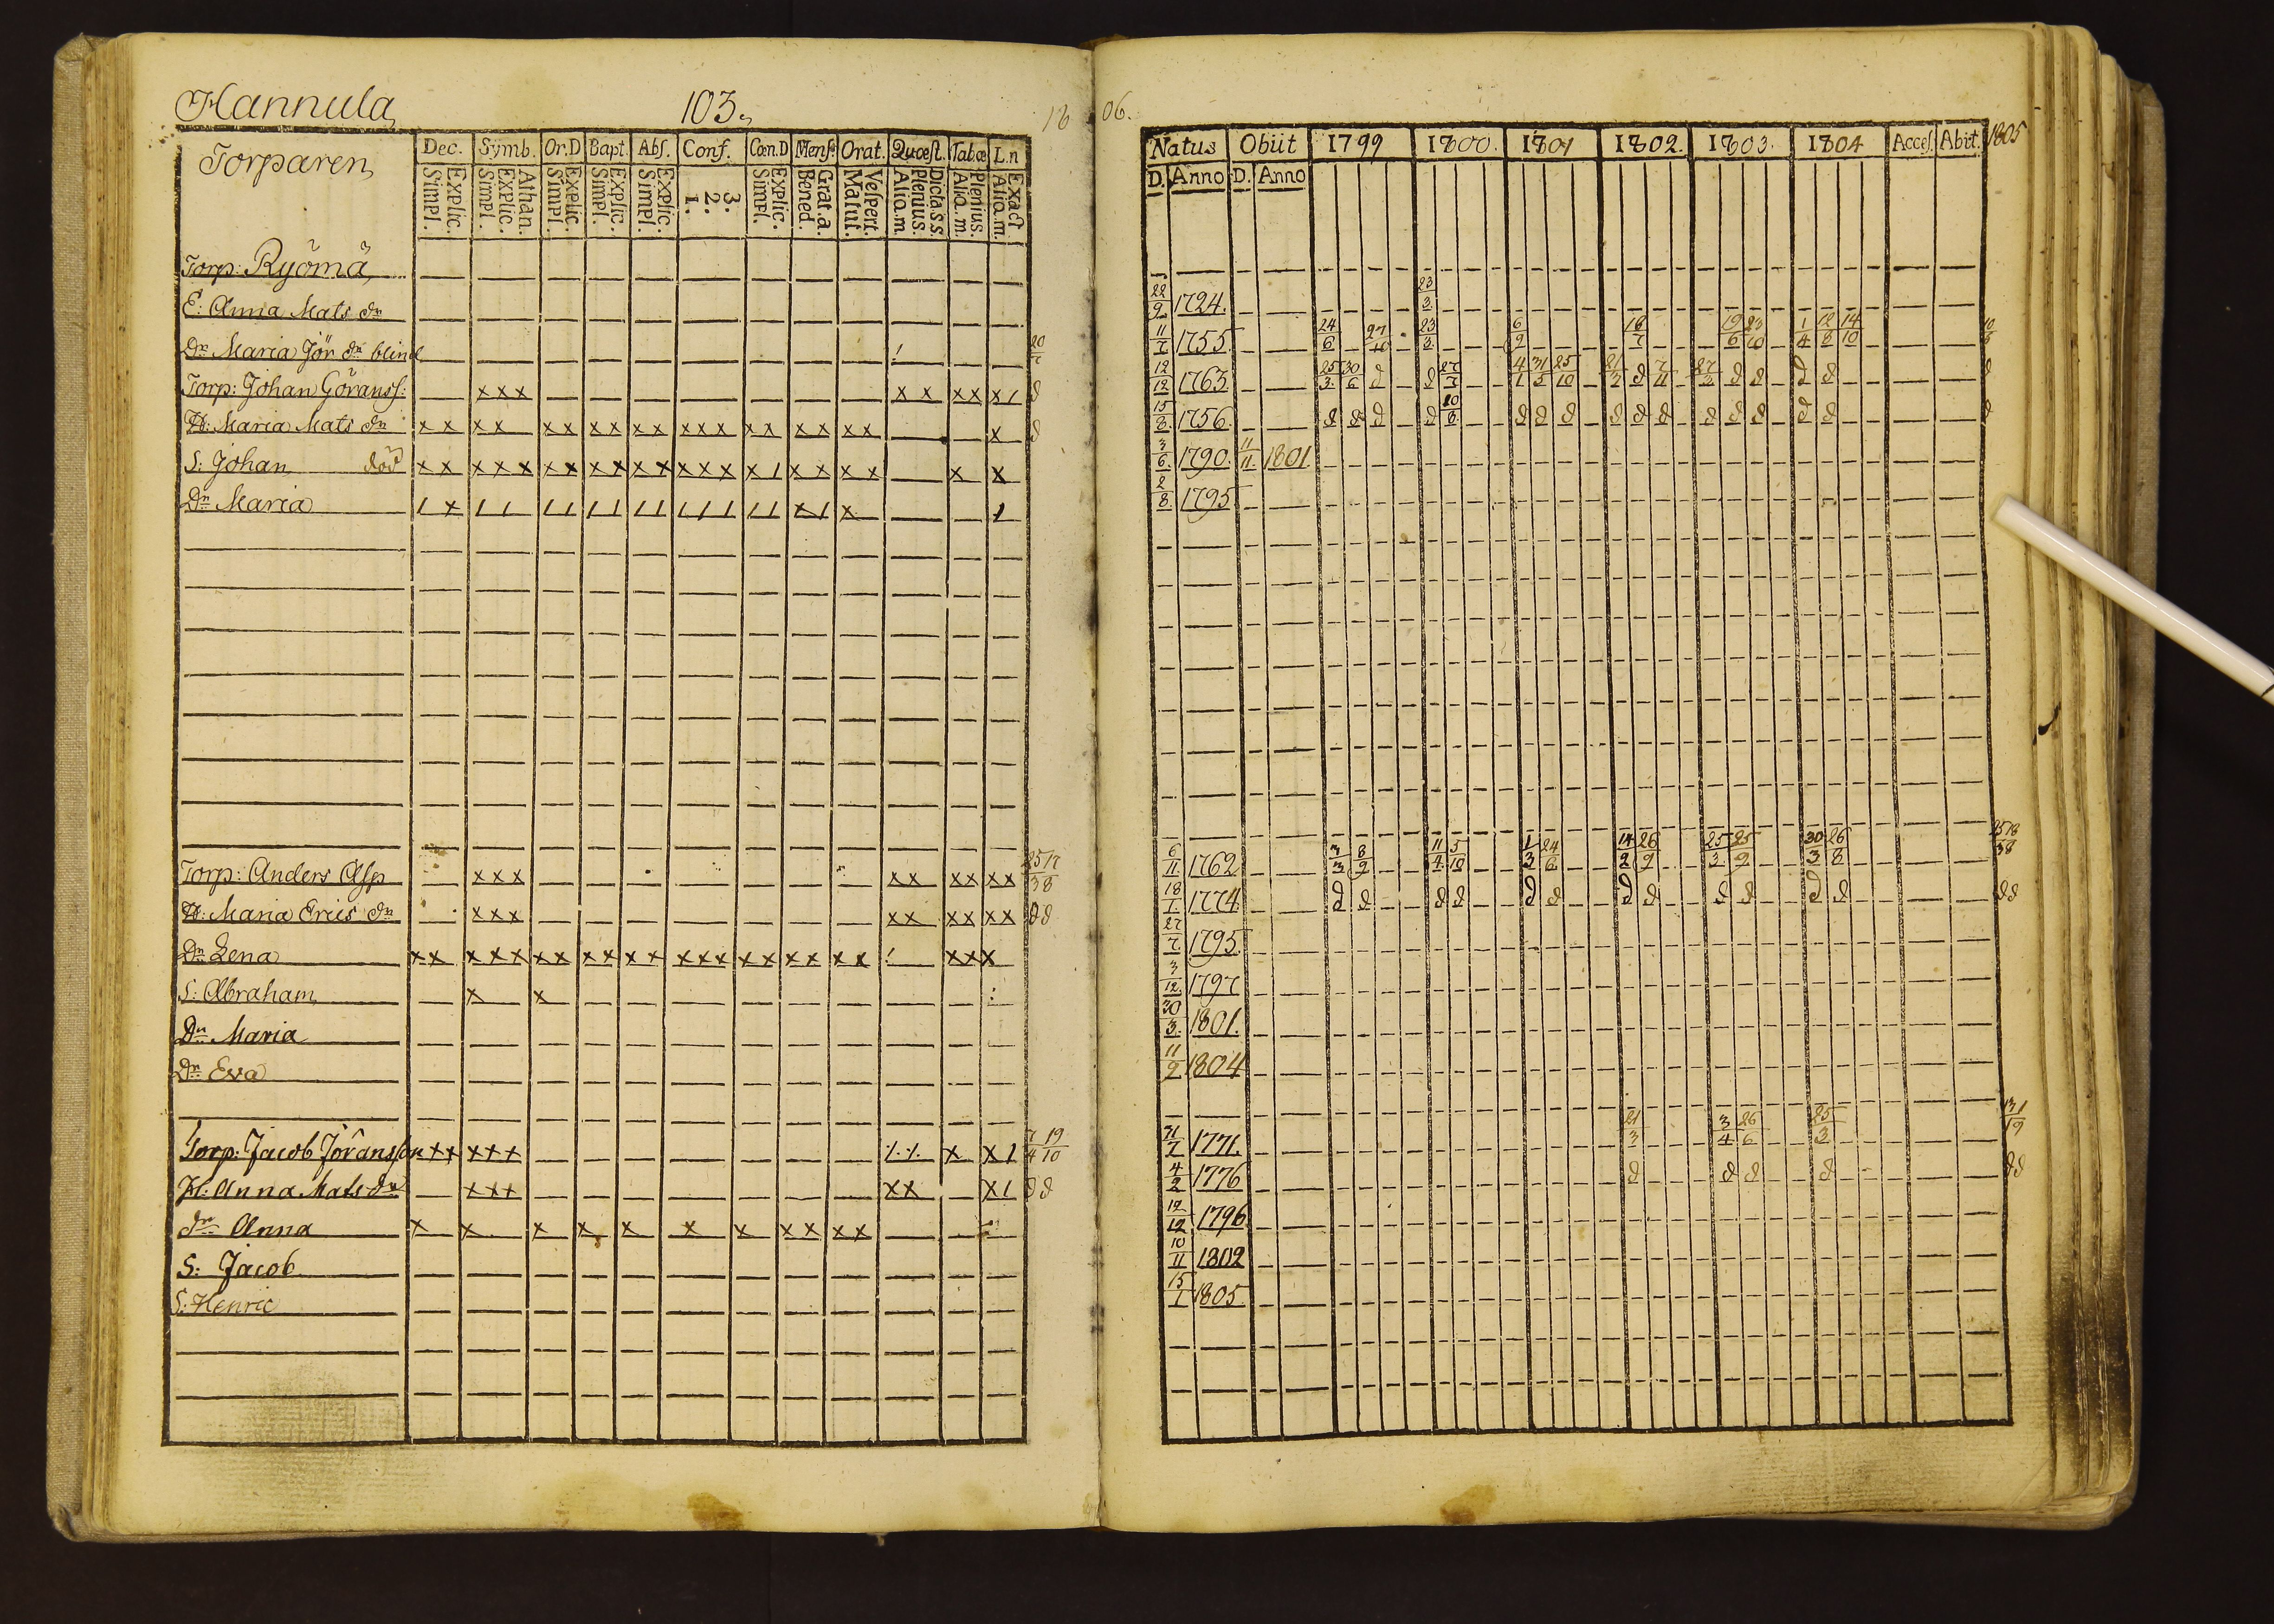 Hannula 103.
Torparen
Dec. Symb. Or.D Bapt. Abs. Conf. Cœn.D Mens. Orat. Quæst. Tabæ L.n
Explic. Simpl. Athan. Explic. Simpl. Explic. Simpl. Explic. Simpl. Explic. Simpl. 3. 2. 1. Explic. Simpl. Grat.a. Bened. Vespert. Matut. Dicta.s.s. Plenius. Alia.m. Plenius. Alia.m. Exact Alia.m.
Torp: Ryömä
E: Anna Mats dr
Dr Maria Jör dr blind
Torp: Johan Göranss: x x x x x x x x 1
H: Maria Mats dr x x x x x x x x x x x x x x x x x x x x
S: Johan död x x x x x x x x x x x x x x x 1 x x x x x x
Dr Maria 1 x 1 1 1 1 1 1 1 1 1 1 1 1 1 x 1 x 1
Torp: Anders Asp x x x x x x x x x
H: Maria Erics dr x x x x x x x x x
Dr Lena x x x x x x x x x x x x x x x x x x x x x x x x
S: Abraham x x
Dr Maria
Dr Eva
Torp: Jacob Jöransson x x x x x x x 1
H: Anna Mats dr x x x x x x 1
dr Anna x x x x x x x x x x x
S: Jacob
S: Henric
18 06.
Natus Obiit 1799 1800. 1801 1802. 1803. 1804 Acces. Abit. 1805
D. Anno D. Anno
22/9 1724. 23/3
11/7 1755. 24/6 27/10 23/3 6/9 18/7 19/6 23/10 1/4 12/8 14/10
12/12 1763 25/3 30/6 d d 27/7 4/1 31/5 25/10 21/3 d 7/11 27/3 d d d d d
15/8 1756. d d d d 20/8 d d d d d d d d d d d d
3/6 1790. 11/11 1801
2/8 1795
6/11 1762 3/3 8/9 11/4 5/10 1/3 24/6 14/2 26/9 25/3 25/9 30/3 26/8
18/1 1774 d d d d d d d d d d d d d d
27/7 1795.
3/12 1797
30/3 1801.
11/9 1804
31/7 1771. 21/3 3/4 26/6 25/3
4/2 1776 d d d d d d
12/12 1796
10/11 1802
15/1 1805